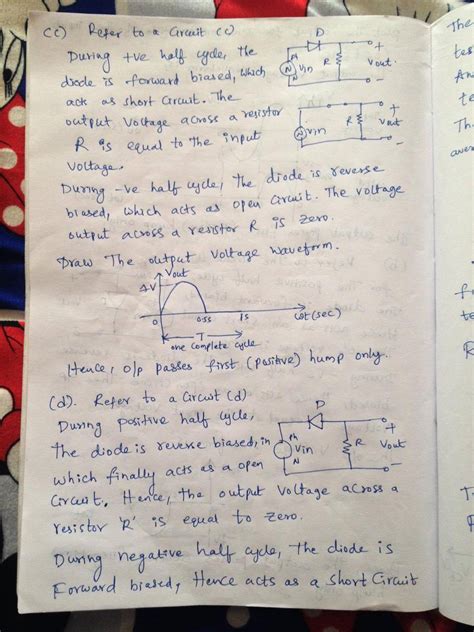 (c) Refer to a Circuit (c)
During +ve half cycle, the
diode is forward biased, which
act as short Circuit. The
output voltage across a resistor
R is equal to the input
voltage.
D
N
Vin
R
+
Vout
-
Vin
R
+
Vout
-
During -ve half cycle, The diode is reverse
biased, which acts as open Circuit. The voltage
output across a resistor R is zero.
Draw The output voltage waveform.
Vout
0
0.5s
1s
wt (sec)
T
one complete cycle
Hence, o/p passes first (positive) hump only.
(d). Refer to a Circuit (d)
During positive half cycle,
The diode is reverse biased, in
which finally acts as a open
Circuit. Hence, The output voltage across a
resistor 'R' is equal to zero.
D
Ph
Vin
N
R
+
Vout
-
During negative half cycle, The diode is
Forward biased, Hence acts as a short Circuit
The
tes
An
te
Th